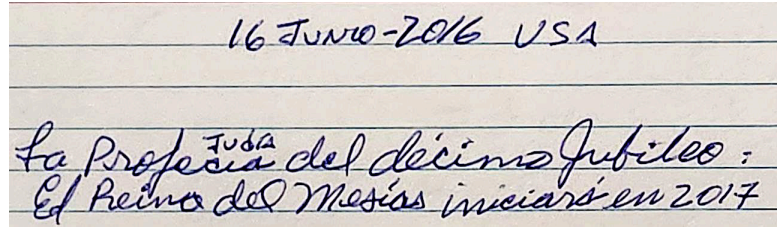 16 Junio-2016 USA
Judía
La Profecia del décimo Jubileo:
El Reino del Mesías iniciará en 2017